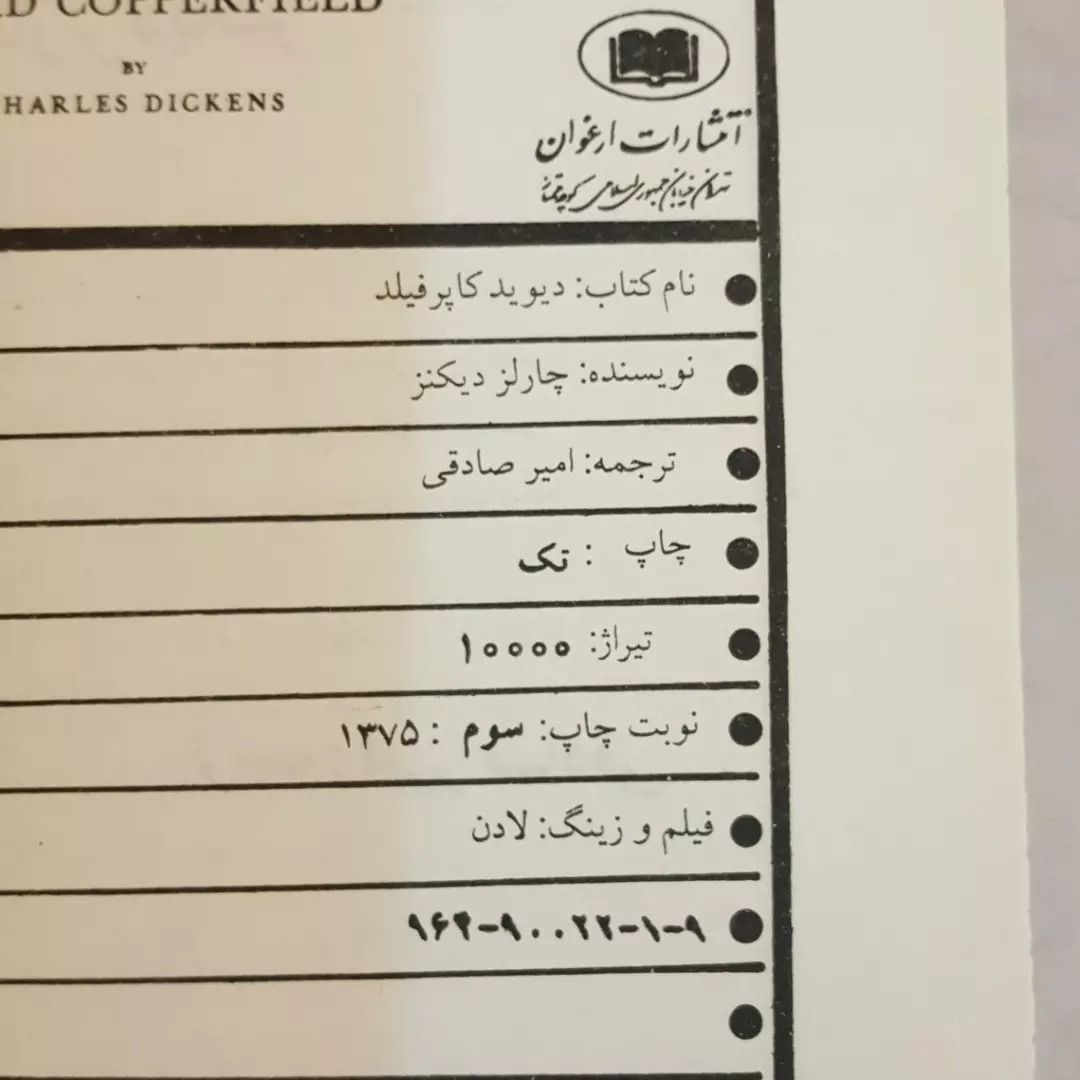 COPPERFIELD
BY
HARLES DICKENS
انتشارات ارغوان
تهران خیابان جمهوری اسلامی کوچه
نام کتاب: دیوید کاپرفیلد
نویسنده: چارلز دیکنز
ترجمه: امیر صادقی
چاپ : تک
تیراژ: ۱۰۰۰۰
نوبت چاپ: سوم : ۱۳۷۵
فیلم و زینگ: لادن
۹۶۴-۹۰۰۲۲-۱-۹